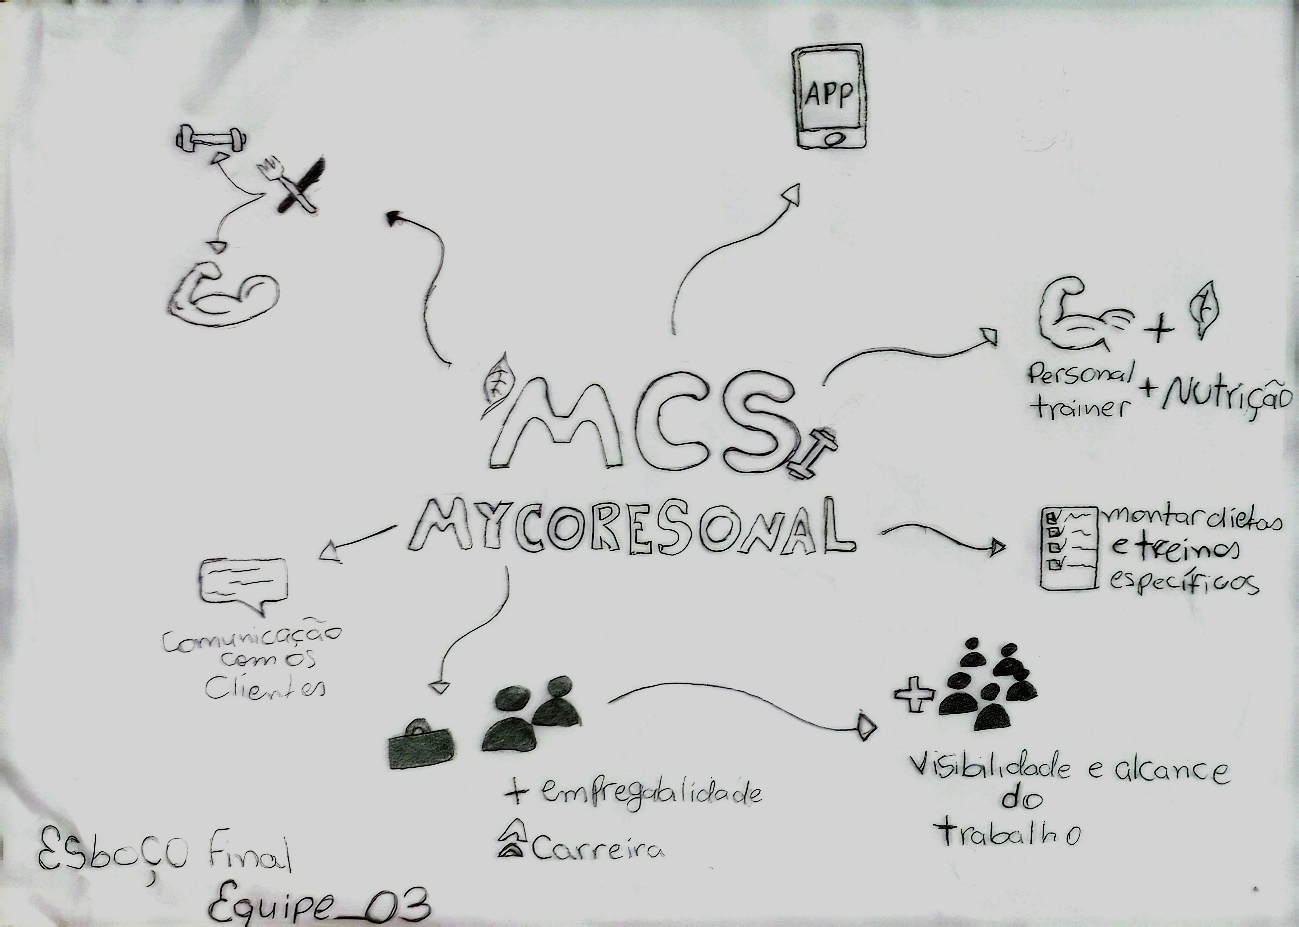 APP
Personal + Nutrição
trainer
MCS
MYCORESONAL
montar dietas
e treinos
específicos
Comunicação
com os
Clientes
+
+ empregabilidade
Carreira
Visibilidade e alcance
do
trabalho
Esboço Final
Equipe_03